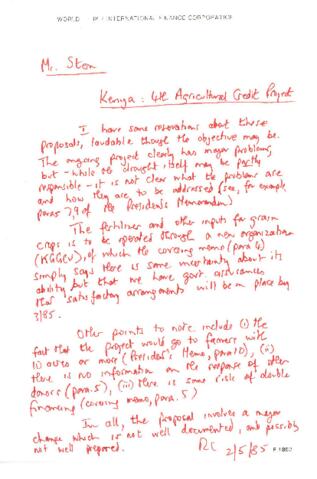 WORLD BANK / INTERNATIONAL FINANCE CORPORATION
Mr. Stern
Kenya: 4th Agricultural Credit Project
I have some reservations about these
proposals, laudable though the objective may be.
The ongoing project clearly has major problems,
but - while the drought itself may be partly
responsible - it is not clear what the problems are
and how they are to be addressed (see, for example
paras 7,9 of the President's Memorandum)
The fertilizer and other inputs for grain
crops is to be operated through a new organization
(KGGCU), of which the covering memo (para 4)
simply says there is some uncertainty about its
ability but that we have govt assurances
that satisfactory arrangements will be in place by
3/85.
Other points to note include (i) the
fact that the project would go to farmers with
10 or more (President's Memo, para 10), (ii)
there is no information on the response of other
donors (para. 5), (iii) there is some risk of double
financing (covering memo, para. 5)
In all, the proposal involves a major
change which is not well documented, and possibly
not well prepared.
2/5/85
F 1852